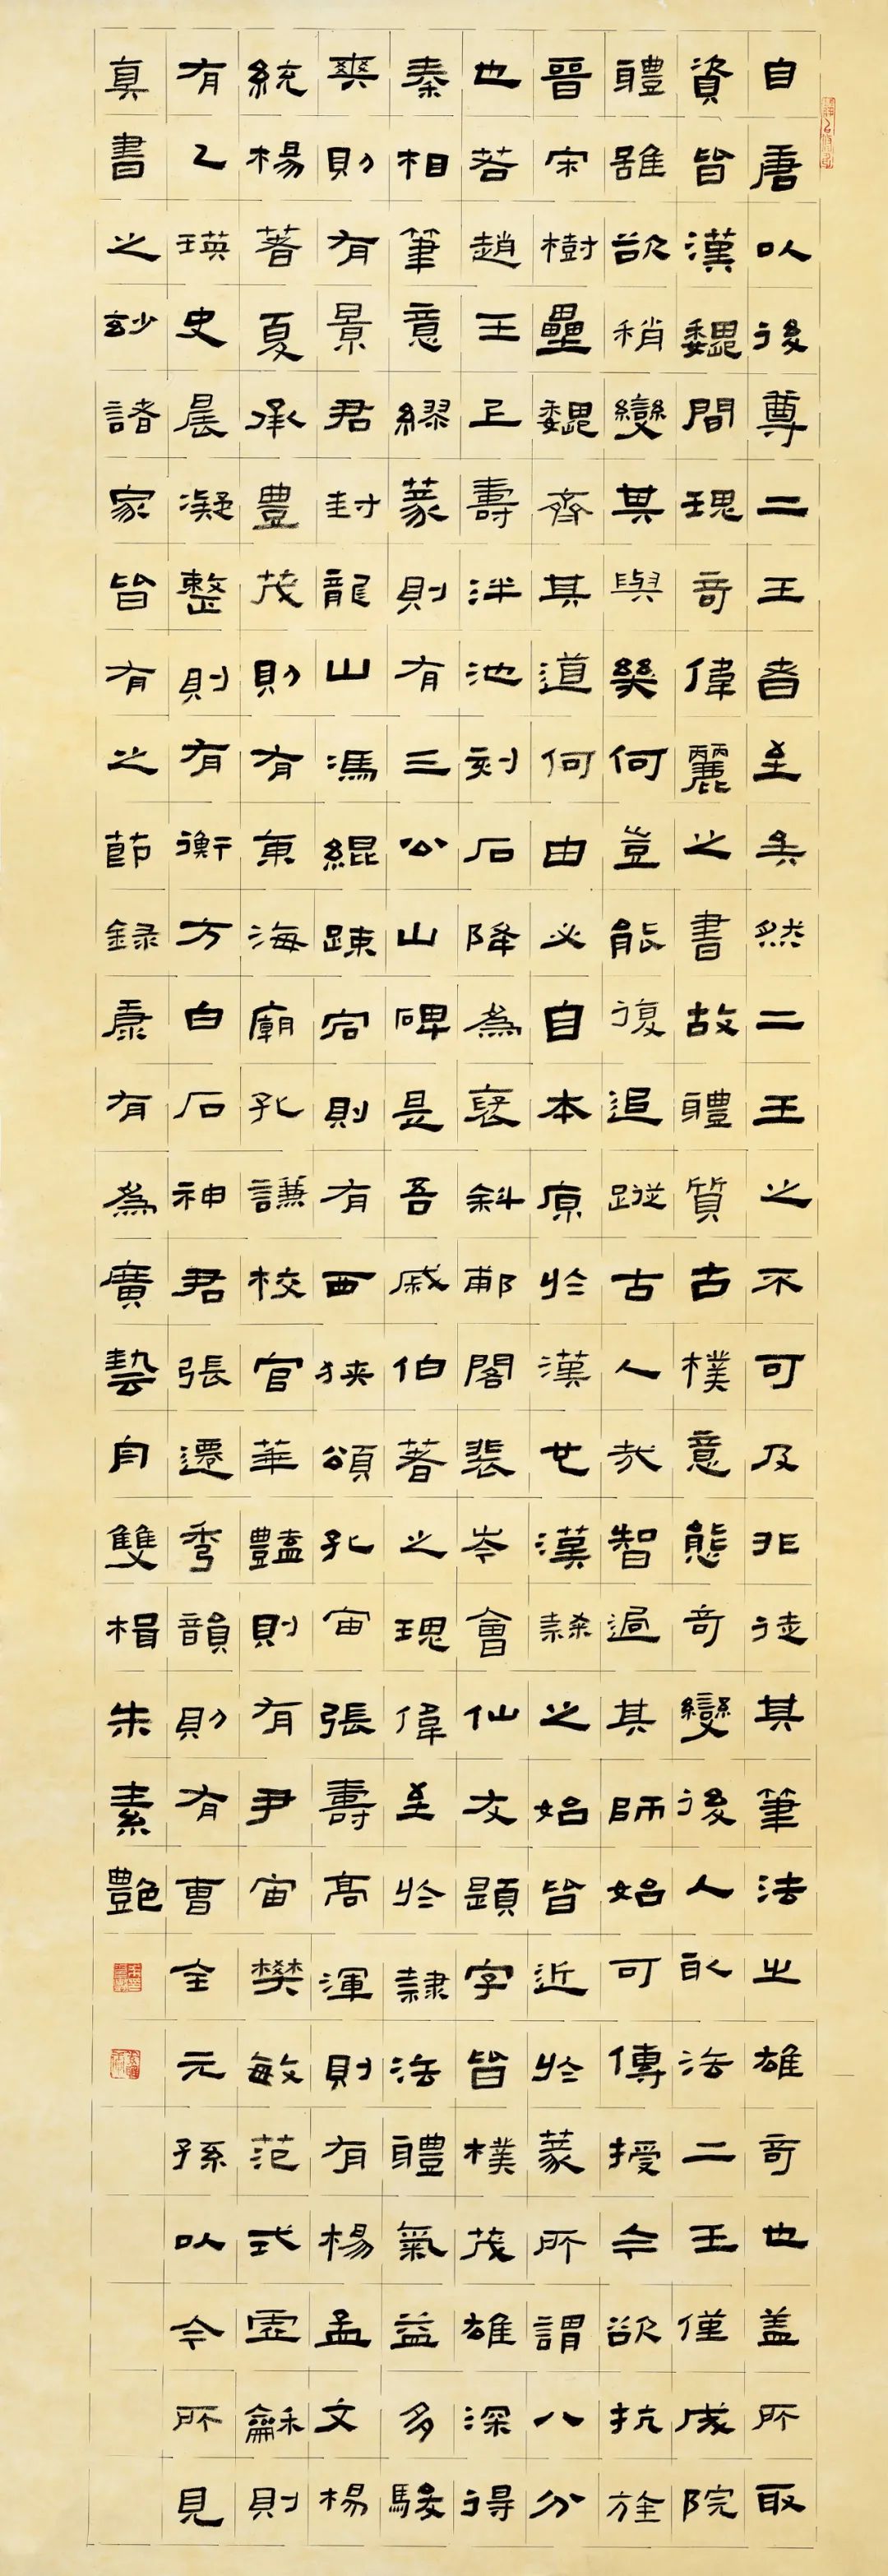 自唐以後尊二王者至矣然二王之不可及非徒其筆法之雄奇也盖所取
資皆漢魏間瑰奇偉麗之書故體質古樸意態奇變後人取法二王僅成院
體雖欲稍變其與幾何豈能復追蹤古人哉智過其師始可傳授今欲抗旌
晉宋樹壘魏齊其道何由必自本原於漢世漢隸之始皆近於篆所謂八分
也若趙王正壽泮池刻石降為褒斜郙閣裴岑會仙友題字皆樸茂雄深得
秦相筆意繆篆則有三公山碑是吾戚伯著之瑰偉至於隸法體氣益多駿
爽則有景君封龍山馮緄疎宕則有西狹頌孔宙張壽高渾則有楊孟文楊
統楊著夏承豐茂則有東海廟孔謙校官華豔則有尹宙樊敏范式虛龢則
有乙瑛史晨凝整則有衡方白石神君張遷秀韻則有曹全元孫以今所見
真書之妙諸家皆有之節錄康有為廣藝舟雙楫朱素艷